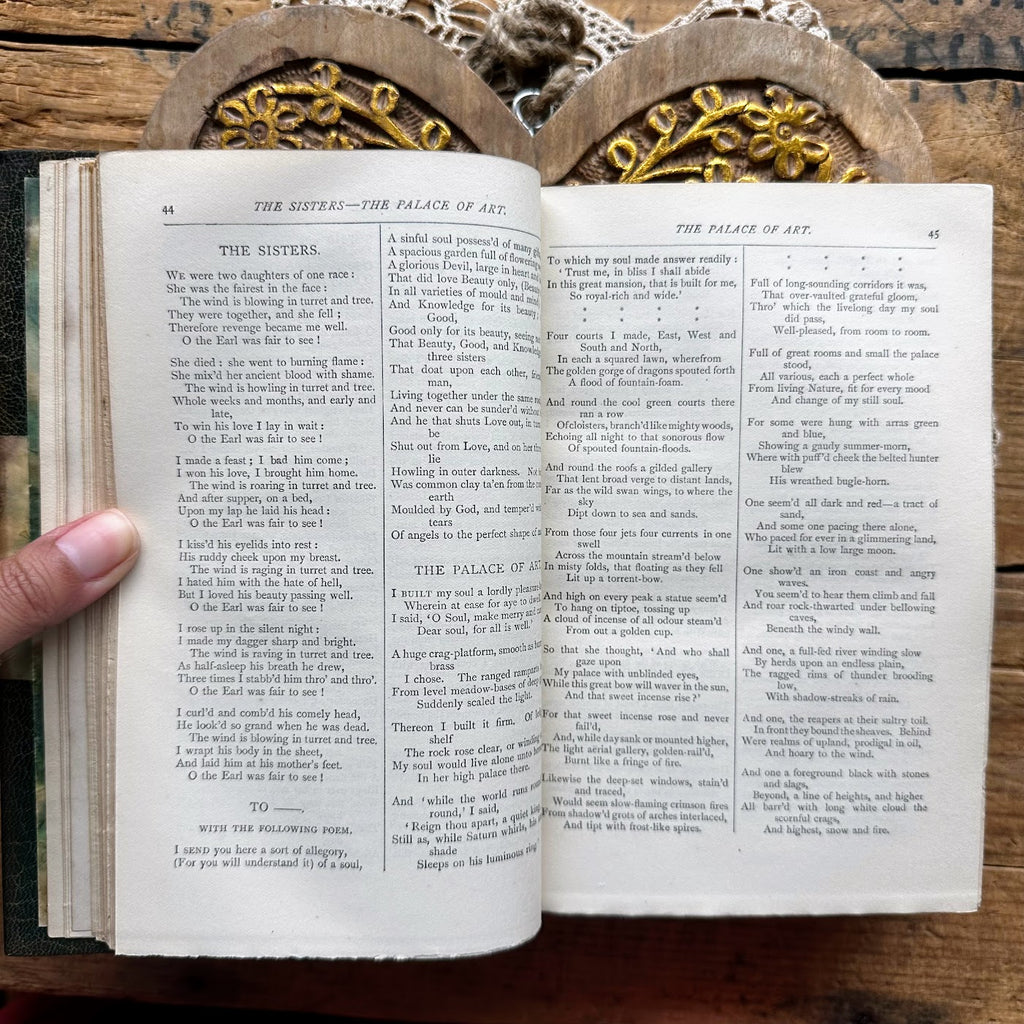 44
THE SISTERS—THE PALACE OF ART.
THE SISTERS.
WE were two daughters of one race :
She was the fairest in the face :
The wind is blowing in turret and tree.
They were together, and she fell ;
Therefore revenge became me well.
O the Earl was fair to see !
She died : she went to burning flame :
She mix'd her ancient blood with shame.
The wind is howling in turret and tree.
Whole weeks and months, and early and
late,
To win his love I lay in wait :
O the Earl was fair to see !
I made a feast ; I bad him come ;
I won his love, I brought him home.
The wind is roaring in turret and tree.
And after supper, on a bed,
Upon my lap he laid his head :
O the Earl was fair to see !
I kiss'd his eyelids into rest :
His ruddy cheek upon my breast.
The wind is raging in turret and tree.
I hated him with the hate of hell,
But I loved his beauty passing well.
O the Earl was fair to see !
I rose up in the silent night :
I made my dagger sharp and bright.
The wind is raving in turret and tree.
As half-asleep his breath he drew,
Three times I stabb'd him thro' and thro'.
O the Earl was fair to see !
I curl'd and comb'd his comely head,
He look'd so grand when he was dead.
The wind is blowing in turret and tree.
I wrapt his body in the sheet,
And laid him at his mother's feet.
O the Earl was fair to see !
TO ——,
WITH THE FOLLOWING POEM.
I SEND you here a sort of allegory,
(For you will understand it) of a soul,
A sinful soul possess'd of many
A spacious garden full of flowering
A glorious Devil, large in heart and
That did love Beauty only,
In all varieties of mould and mind,
And Knowledge for its beauty ;
Good,
Good only for its beauty, seeing
That Beauty, Good, and
three sisters
That doat upon each other,
man,
Living together under the same
And never can be sunder'd without
And he that shuts Love out, in
be
Shut out from Love, and on her
lie
Howling in outer darkness.
Was common clay ta'en from the
earth
Moulded by God, and temper'd
tears
Of angels to the perfect shape of
THE PALACE OF ART
I BUILT my soul a lordly
Wherein at ease for aye to
I said, 'O Soul, make merry and
Dear soul, for all is well.'
A huge crag-platform, smooth as
brass
I chose. The ranged ramparts
From level meadow-bases of deep
Suddenly scaled the light.
Thereon I built it firm. Of
shelf
The rock rose clear, or winding
My soul would live alone unto
In her high palace there.
And 'while the world runs round
round,' I said,
'Reign thou apart, a quiet king,
Still as, while Saturn whirls, his
shade
Sleeps on his luminous ring.
THE PALACE OF ART.
45
To which my soul made answer readily :
'Trust me, in bliss I shall abide
In this great mansion, that is built for me,
So royal-rich and wide.'
Four courts I made, East, West and
South and North,
In each a squared lawn, wherefrom
The golden gorge of dragons spouted forth
A flood of fountain-foam.
And round the cool green courts there
ran a row
Of cloisters, branch'd like mighty woods,
Echoing all night to that sonorous flow
Of spouted fountain-floods.
And round the roofs a gilded gallery
That lent broad verge to distant lands,
Far as the wild swan wings, to where the
sky
Dipt down to sea and sands.
From those four jets four currents in one
swell
Across the mountain stream'd below
In misty folds, that floating as they fell
Lit up a torrent-bow.
And high on every peak a statue seem'd
To hang on tiptoe, tossing up
A cloud of incense of all odour steam'd
From out a golden cup.
So that she thought, 'And who shall
gaze upon
My palace with unblinded eyes,
While this great bow will waver in the sun,
And that sweet incense rise ?'
For that sweet incense rose and never
fail'd,
And, while day sank or mounted higher,
The light aërial gallery, golden-rail'd,
Burnt like a fringe of fire.
Likewise the deep-set windows, stain'd
and traced,
Would seem slow-flaming crimson fires
From shadow'd grots of arches interlaced,
And tipt with frost-like spires.
Full of long-sounding corridors it was,
That over-vaulted grateful gloom,
Thro' which the livelong day my soul
did pass,
Well-pleased, from room to room.
Full of great rooms and small the palace
stood,
All various, each a perfect whole
From living Nature, fit for every mood
And change of my still soul.
For some were hung with arras green
and blue,
Showing a gaudy summer-morn,
Where with puff'd cheek the belted hunter
blew
His wreathed bugle-horn.
One seem'd all dark and red—a tract of
sand,
And some one pacing there alone,
Who paced for ever in a glimmering land,
Lit with a low large moon.
One show'd an iron coast and angry
waves.
You seem'd to hear them climb and fall
And roar rock-thwarted under bellowing
caves,
Beneath the windy wall.
And one, a full-fed river winding slow
By herds upon an endless plain,
The ragged rims of thunder brooding
low,
With shadow-streaks of rain.
And one, the reapers at their sultry toil.
In front they bound the sheaves. Behind
Were realms of upland, prodigal in oil,
And hoary to the wind.
And one a foreground black with stones
and slags,
Beyond, a line of heights, and higher
All barr'd with long white cloud the
scornful crags,
And highest, snow and fire.